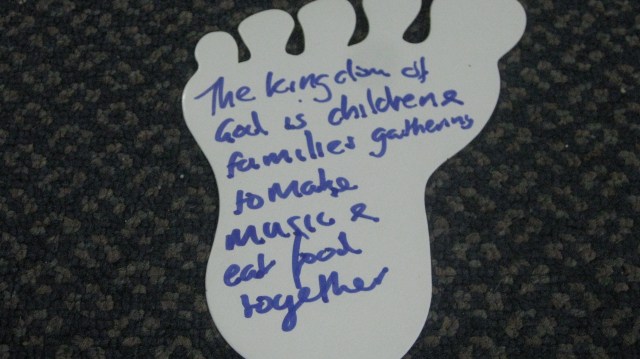 The kingdom of
God is children &
families gathering
to make
music &
eat food
together